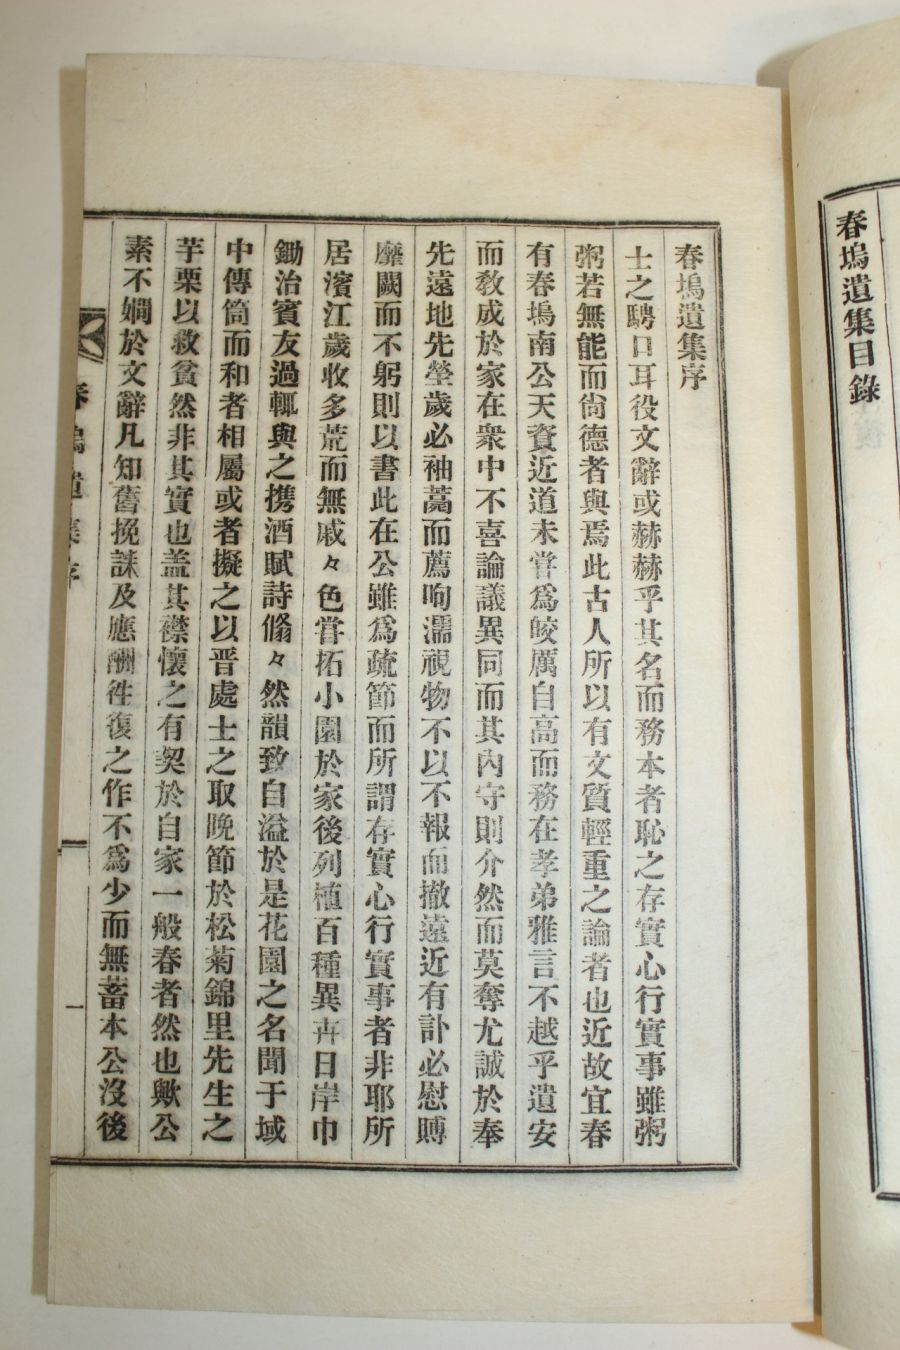 春塢遺集目錄
春塢遺集序
士之騁口耳役文辭或赫赫乎其名而務本者恥之存實心行實事雖粥
粥若無能而尙德者與焉此古人所以有文質輕重之論者也近故宜春
有春塢南公天資近道未甞爲皎厲自高而務在孝弟雅言不越乎遺安
而敎成於家在衆中不喜論議異同而其內守則介然而莫奪尤誠於奉
先遠地先塋歲必袖藁而薦呴濡視物不以不報而撤遠近有訃必慰賻
靡闕而不躬則以書此在公雖爲疏節而所謂存實心行實事者非耶所
居濱江歲收多荒而無戚々色甞拓小園於家後列植百種異卉日岸巾
鋤治賓友過輒與之携酒賦詩翛々然韻致自溢於是花園之名聞于域
中傳筒而和者相屬或者擬之以晋處士之取晩節於松菊錦里先生之
芋栗以救貧然非其實也盖其襟懷之有契於自家一般春者然也歟公
素不嫺於文辭凡知舊挽誄及應酬徃復之作不爲少而無蓄本公沒後
春塢遺集序
一